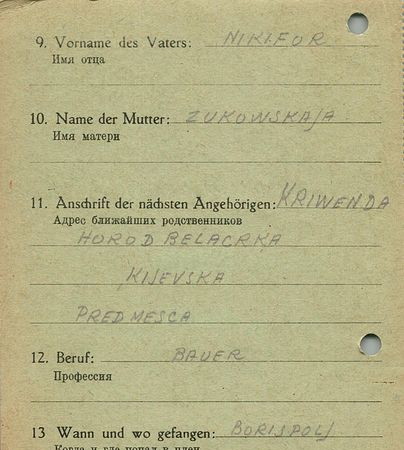 9. Vorname des Vaters: NIKIFOR
Имя отца
10. Name der Mutter: ZUKOWSKAJA
Имя матери
11. Anschrift der nächsten Angehörigen: KRIWENDA
Адрес ближайших родственников
HOROD BELACRKA
KIJEVSKA
PREDMESCA
12. Beruf: BAUER
Профессия
13 Wann und wo gefangen: BORISPOLJ
Когда и где попал в плен